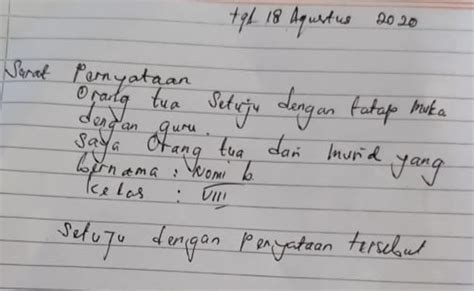 tgl 18 Agustus 2020
Surat Pernyataan
Orang tua Setuju dengan tatap muka
dengan guru.
Saya Orang tua dari Murid yang
bernama : Nomi b
Kelas : VIII
Setuju dengan Penyataan tersebut